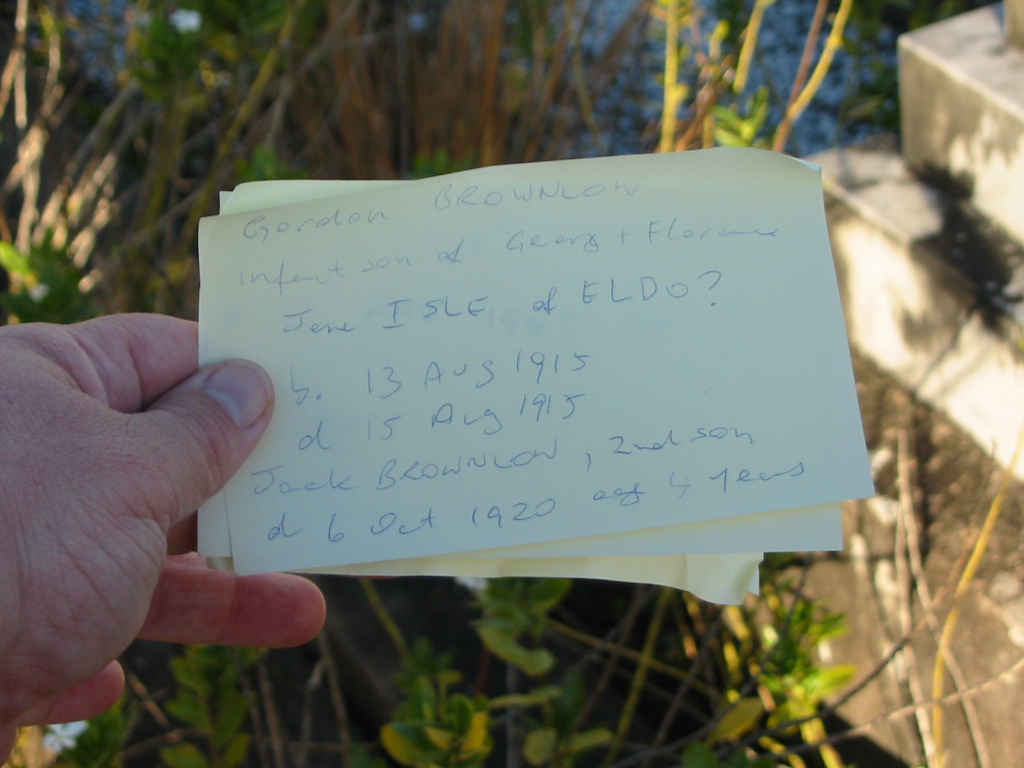 Gordon BROWNLOW
infant son of George + Florence
Jane ISLE of ELDO?
b. 13 Aug 1915
d 15 Aug 1915
Jack BROWNLOW, 2nd son
d 6 Oct 1920 age 4 years